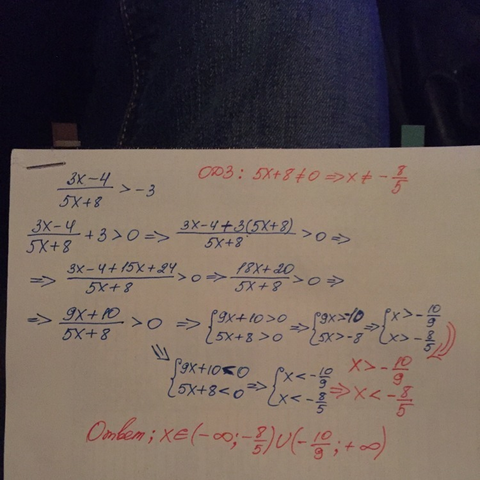 (3x-4)/(5x+8) > -3 ОДЗ: 5x+8≠0 ⇒ x≠ -8/5
(3x-4)/(5x+8) + 3 > 0 ⇒ (3x-4+3(5x+8))/(5x+8) > 0 ⇒
⇒ (3x-4+15x+24)/(5x+8) > 0 ⇒ (18x+20)/(5x+8) > 0 ⇒
⇒ (9x+10)/(5x+8) > 0 ⇒ { 9x+10>0 ⇒ { 9x>-10 ⇒ { x>-10/9
5x+8>0 5x>-8 x>-8/5
⇒ { 9x+10<0 ⇒ { x<-10/9 x>-10/9
5x+8<0 x<-8/5 ⇒ x<-8/5
Ответ; x∈(-∞;-8/5)∪(-10/9;+∞)